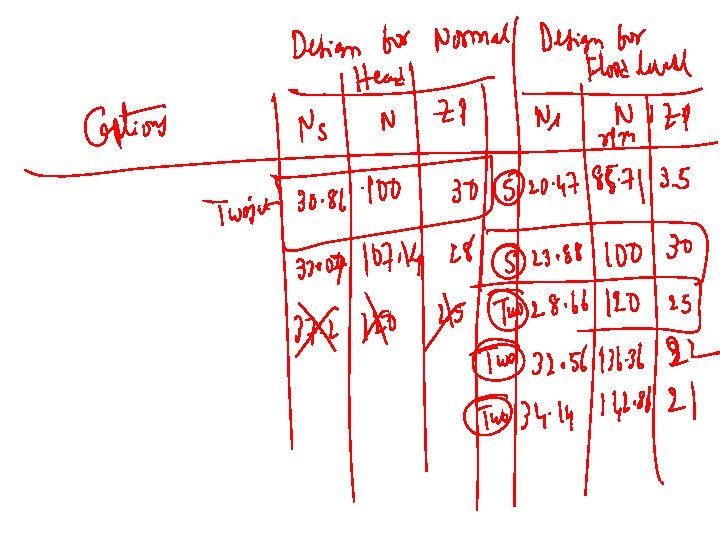 Design for Normal Design for
Head Flood Level
Options Ns N ZP Ns N rpm ZP
Twojet 30.86 100 30 S 20.47 85.71 3.5
33.07 107.14 28 S 23.88 100 30
Two 28.66 120 25
Two 32.56 136.36 22
Two 34.14 142.86 21